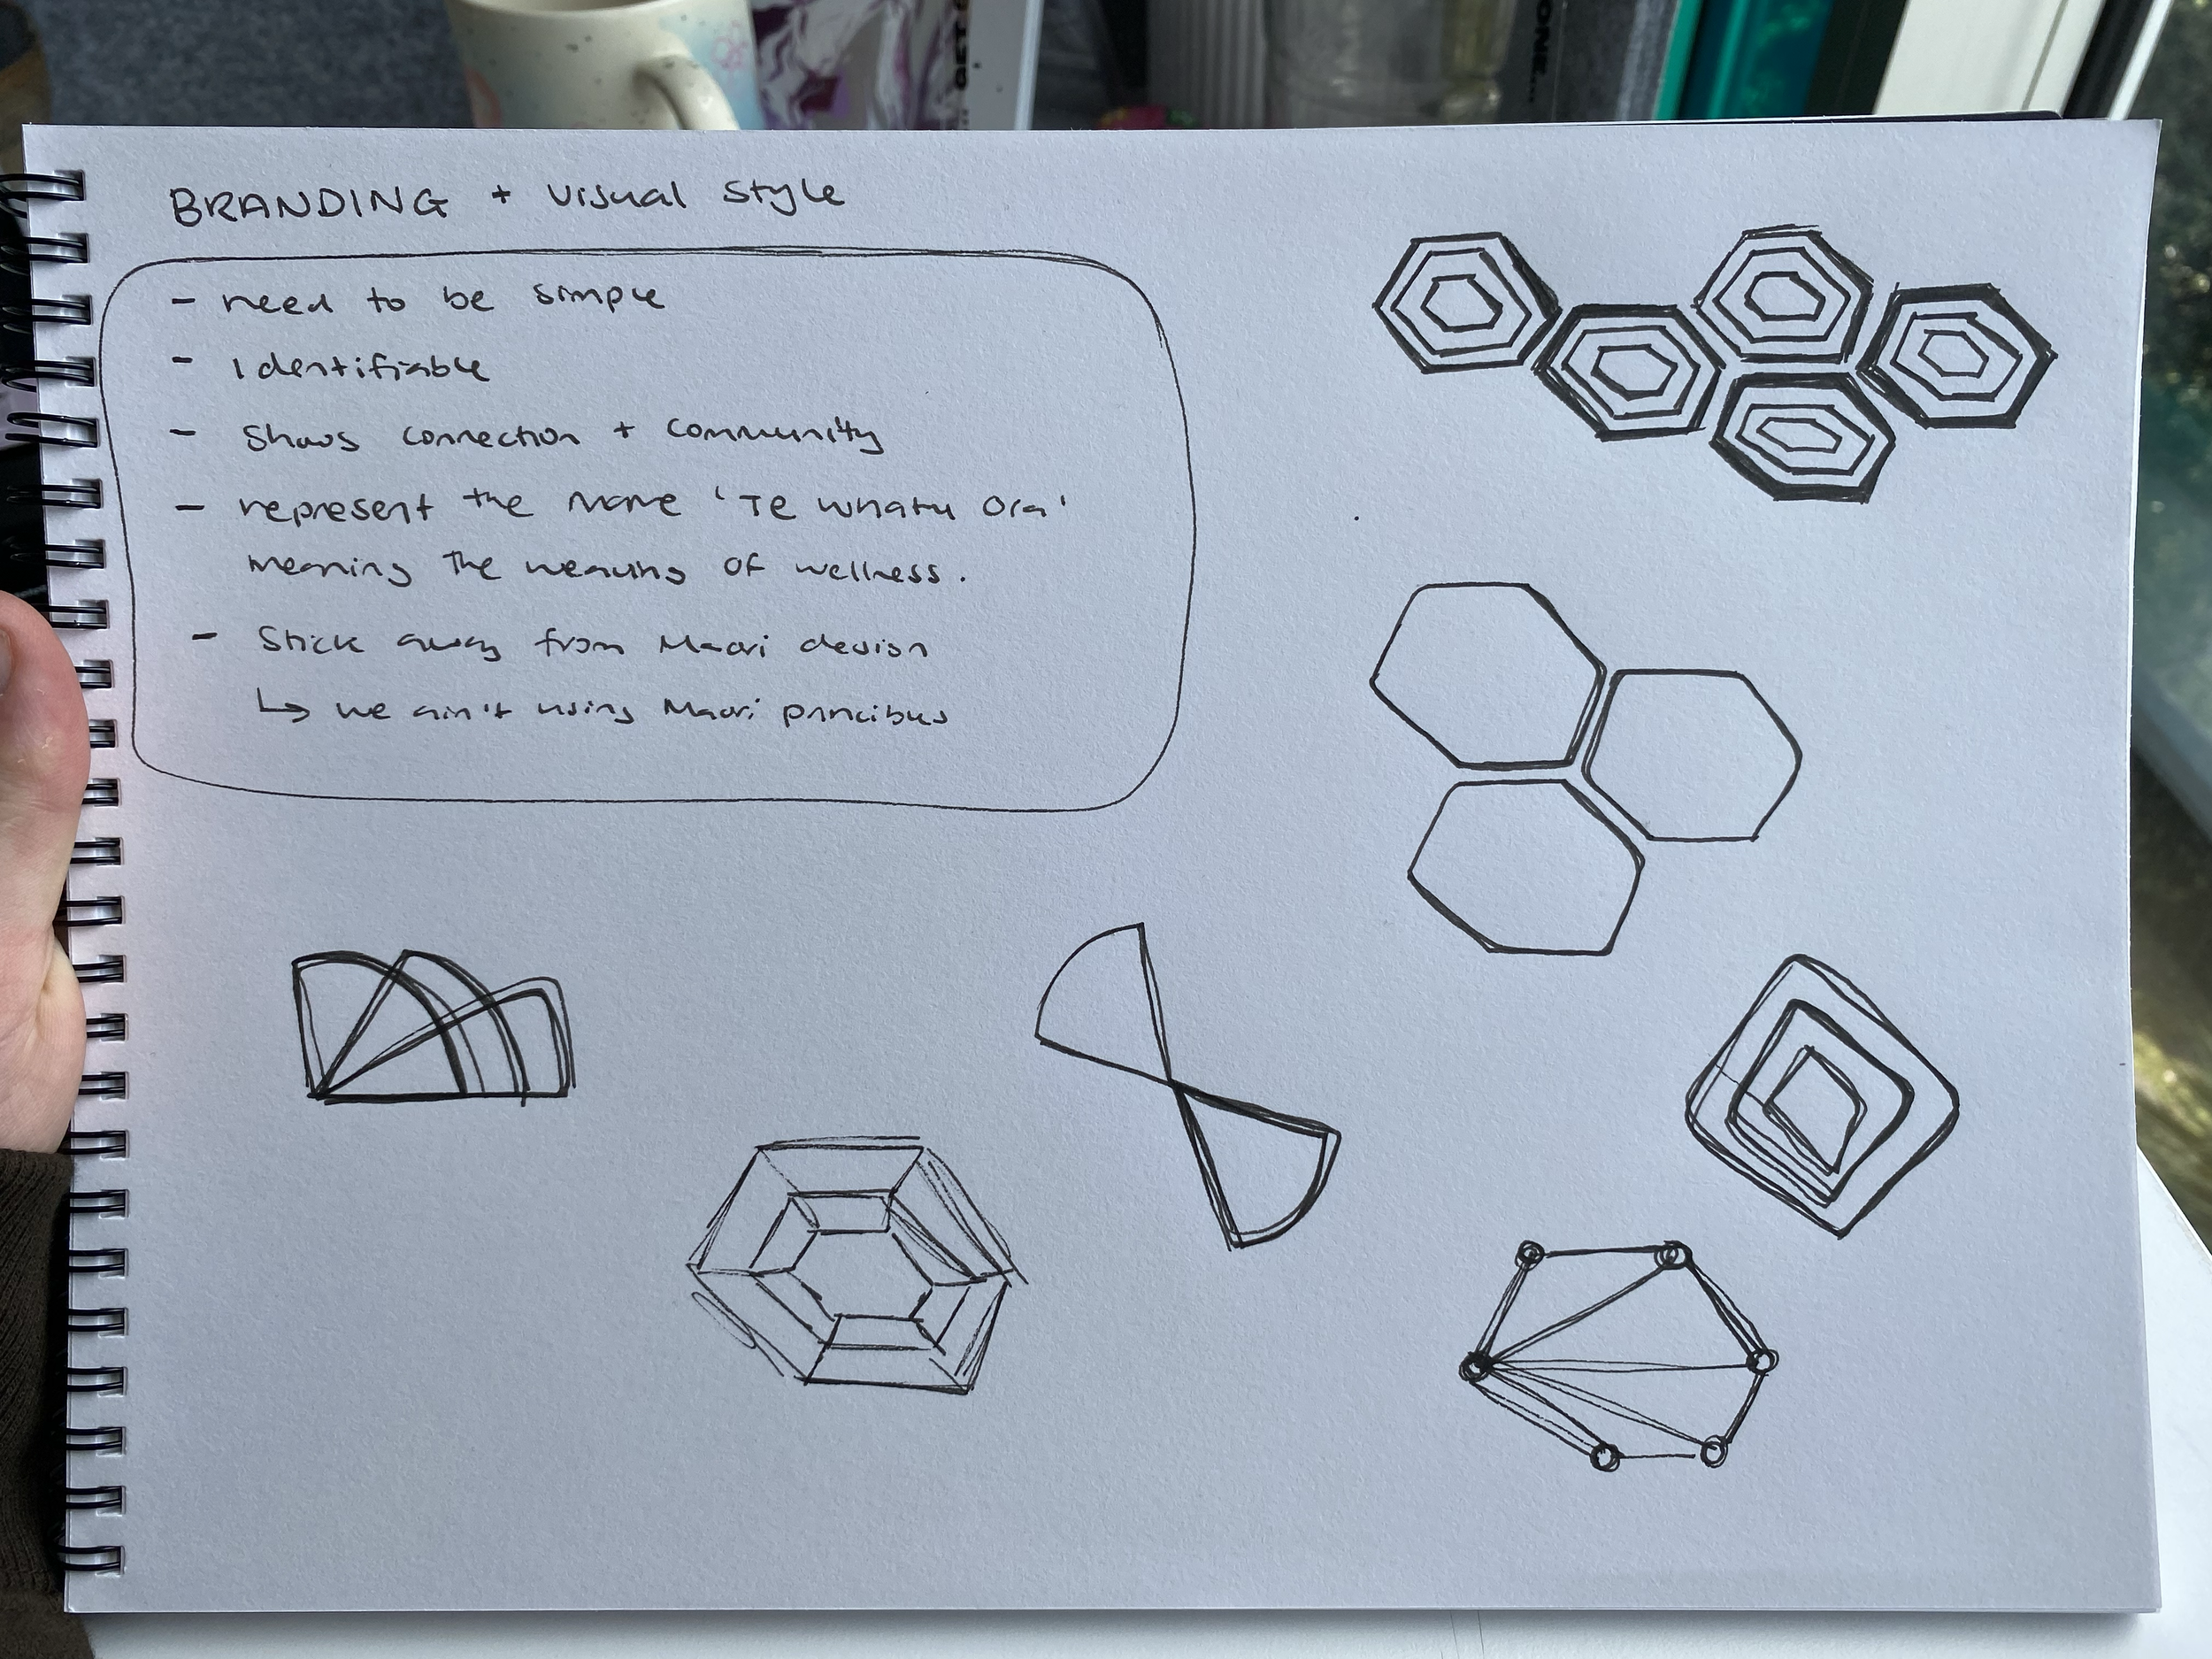 GET
ONE...
BRANDING + Visual Style
- need to be simple
- Identifiable
- Shows connection + community
- represent the name 'Te Whatu Ora'
meaning the weaving of wellness.
- Stick away from Maori design
↳ we ain't using Maori principles